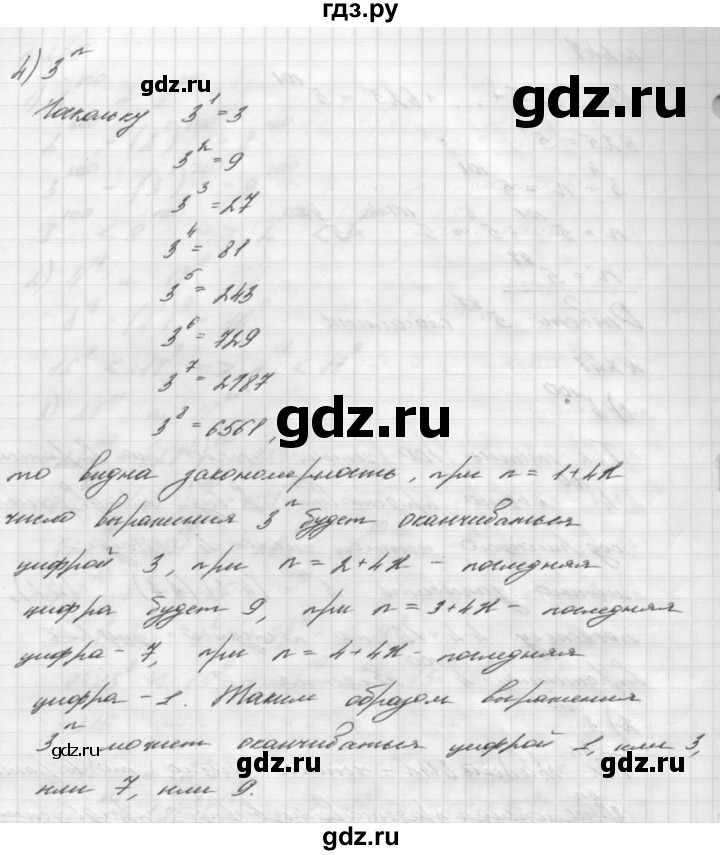 гдз.ру
4) 3ⁿ
Поскольку 3¹=3
3²=9
3³=27
3⁴=81
3⁵=243
3⁶=729
3⁷=2187
3⁸=6561,
то видна закономерность, при n=1+4k
число выражения 3ⁿ будет оканчиваться
цифрой 3, при n=2+4k - последняя
цифра будет 9, при n=3+4k - последняя
цифра - 7, при n=4+4k - последняя
цифра - 1. Таким образом выражения
3ⁿ может оканчиваться цифрой 1, или 3,
или 7, или 9.
gdz.ru
gdz.ru
gdz.ru
gdz.ru
gdz.ru
gdz.ru
gdz.ru
gdz.ru
gdz.ru
gdz.ru
gdz.ru